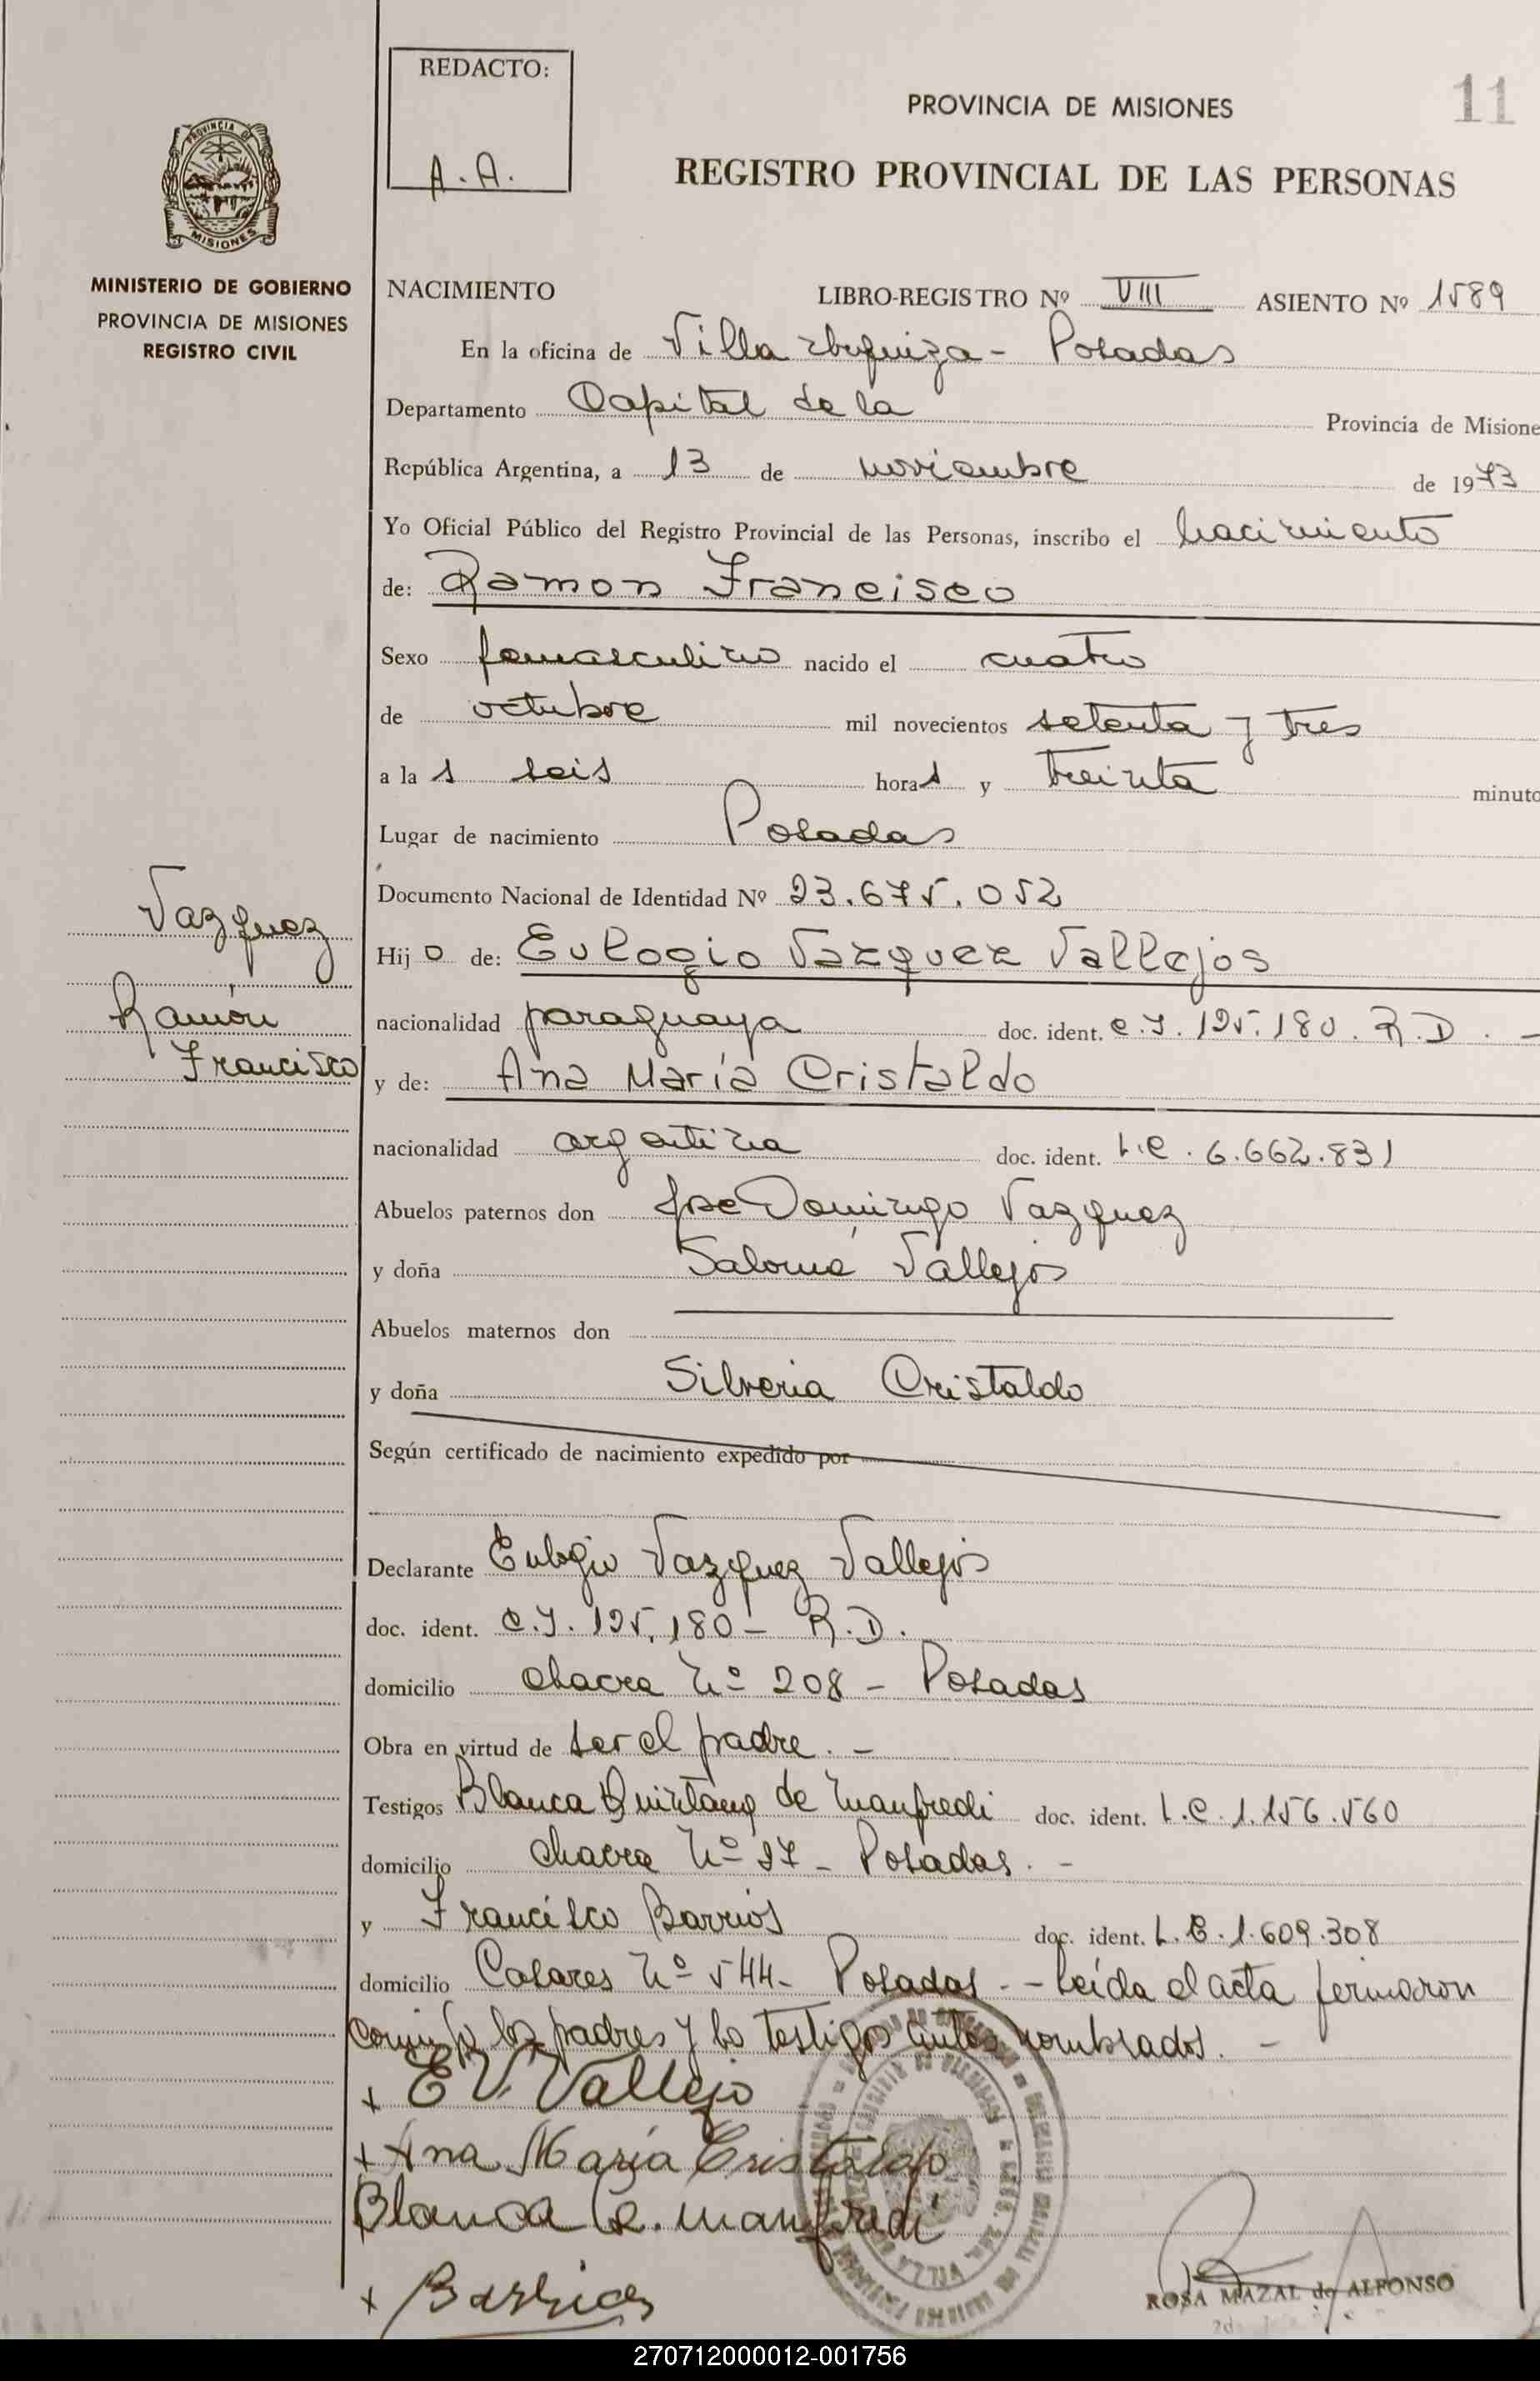 REDACTO:
A.A.
PROVINCIA DE MISIONES
11
REGISTRO PROVINCIAL DE LAS PERSONAS
PROVINCIA DE
MISIONES
MINISTERIO DE GOBIERNO
PROVINCIA DE MISIONES
REGISTRO CIVIL
NACIMIENTO LIBRO-REGISTRO Nº VIII ASIENTO Nº 1589
En la oficina de Villa Urquiza - Posadas
Departamento Capital de la Provincia de Misione
República Argentina, a 13 de noviembre de 1973
Yo Oficial Público del Registro Provincial de las Personas, inscribo el nacimiento
de: Ramon Francisco
Sexo femasculino nacido el cuatro
de octubre mil novecientos setenta y tres
a la s seis horas y treinta minuto
Lugar de nacimiento Posadas
Documento Nacional de Identidad Nº 23.675.052
Vazquez
Ramón
Francisco
Hijo de: Eulogio Vazquez Vallejos
nacionalidad paraguaya doc. ident. C.I. 195.180. R.D. -
y de: Ana María Cristaldo
nacionalidad argentina doc. ident. L.C. 6.662.831
Abuelos paternos don Jose Domingo Vazquez
y doña Salomé Vallejos
Abuelos maternos don
y doña Silveria Cristaldo
Según certificado de nacimiento expedido por
Declarante Eulogio Vazquez Vallejos
doc. ident. C.I. 195.180 - R.D.
domicilio chacra Nº 208 - Posadas
Obra en virtud de ser el padre. -
Testigos Blanca Quintana de Manfredi doc. ident. L.C. 1.156.560
domicilio chacra Nº 97 - Posadas. -
y Francisco Barrios doc. ident. L.E. 1.609.308
domicilio Casares Nº 544 - Posadas - - Leída el acta firmaron
conmigo los padres y los testigos antes nombrados. -
x E V. Vallejo
x Ana María Cristaldo
Blanca Q. Manfredi
x Barrios
ROSA MAZAL de ALFONSO
270712000012-001756